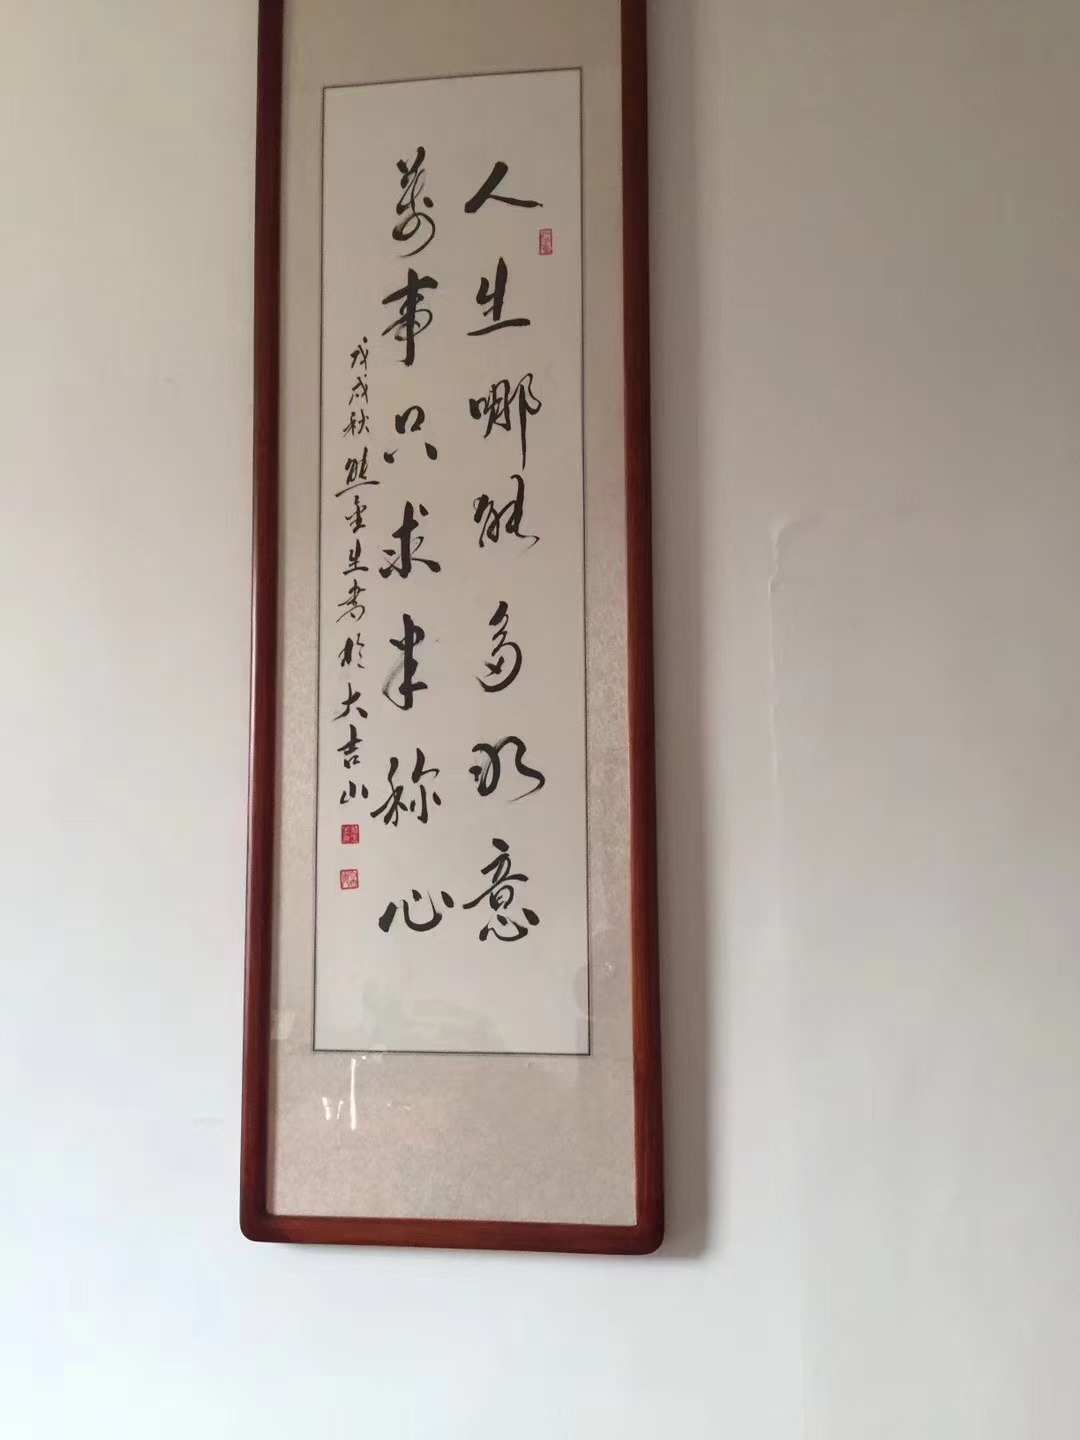 人生哪能多如意
萬事只求半称心
戊戌秋熊金生書於大吉山